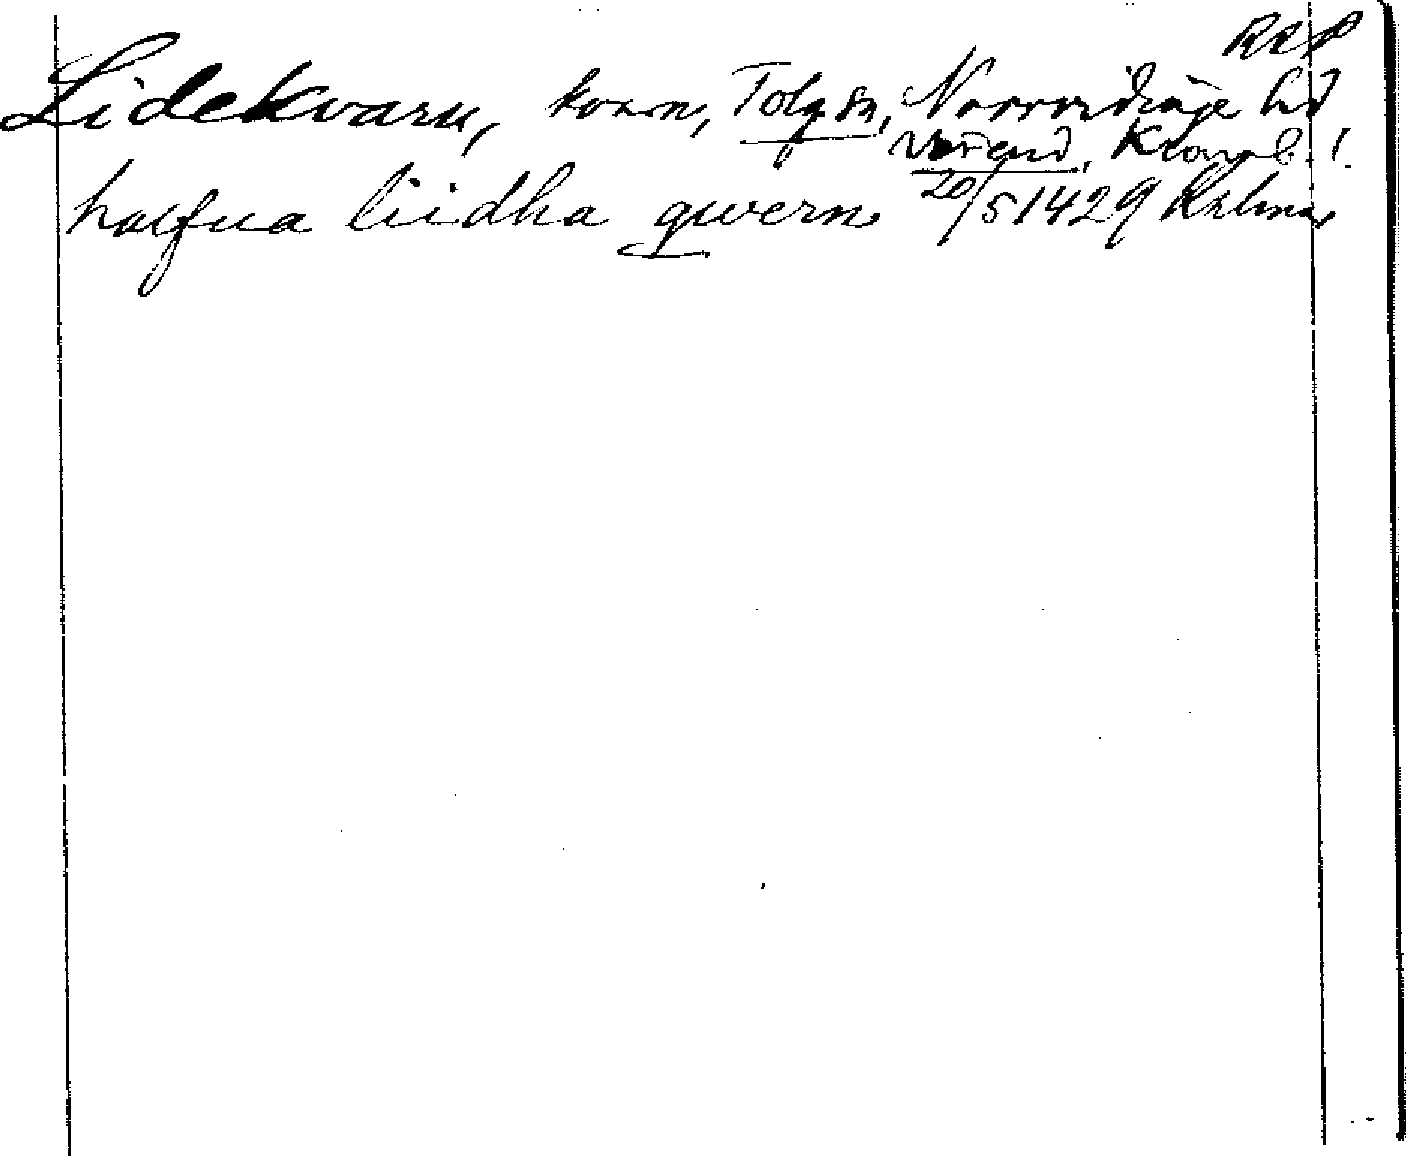 REP
Lidekvarn, kvarn, Tolg sn, Norrvidinge hd
Värend, Kronob. l.
halfua liidha qwern 20/5 1429 Kalmar